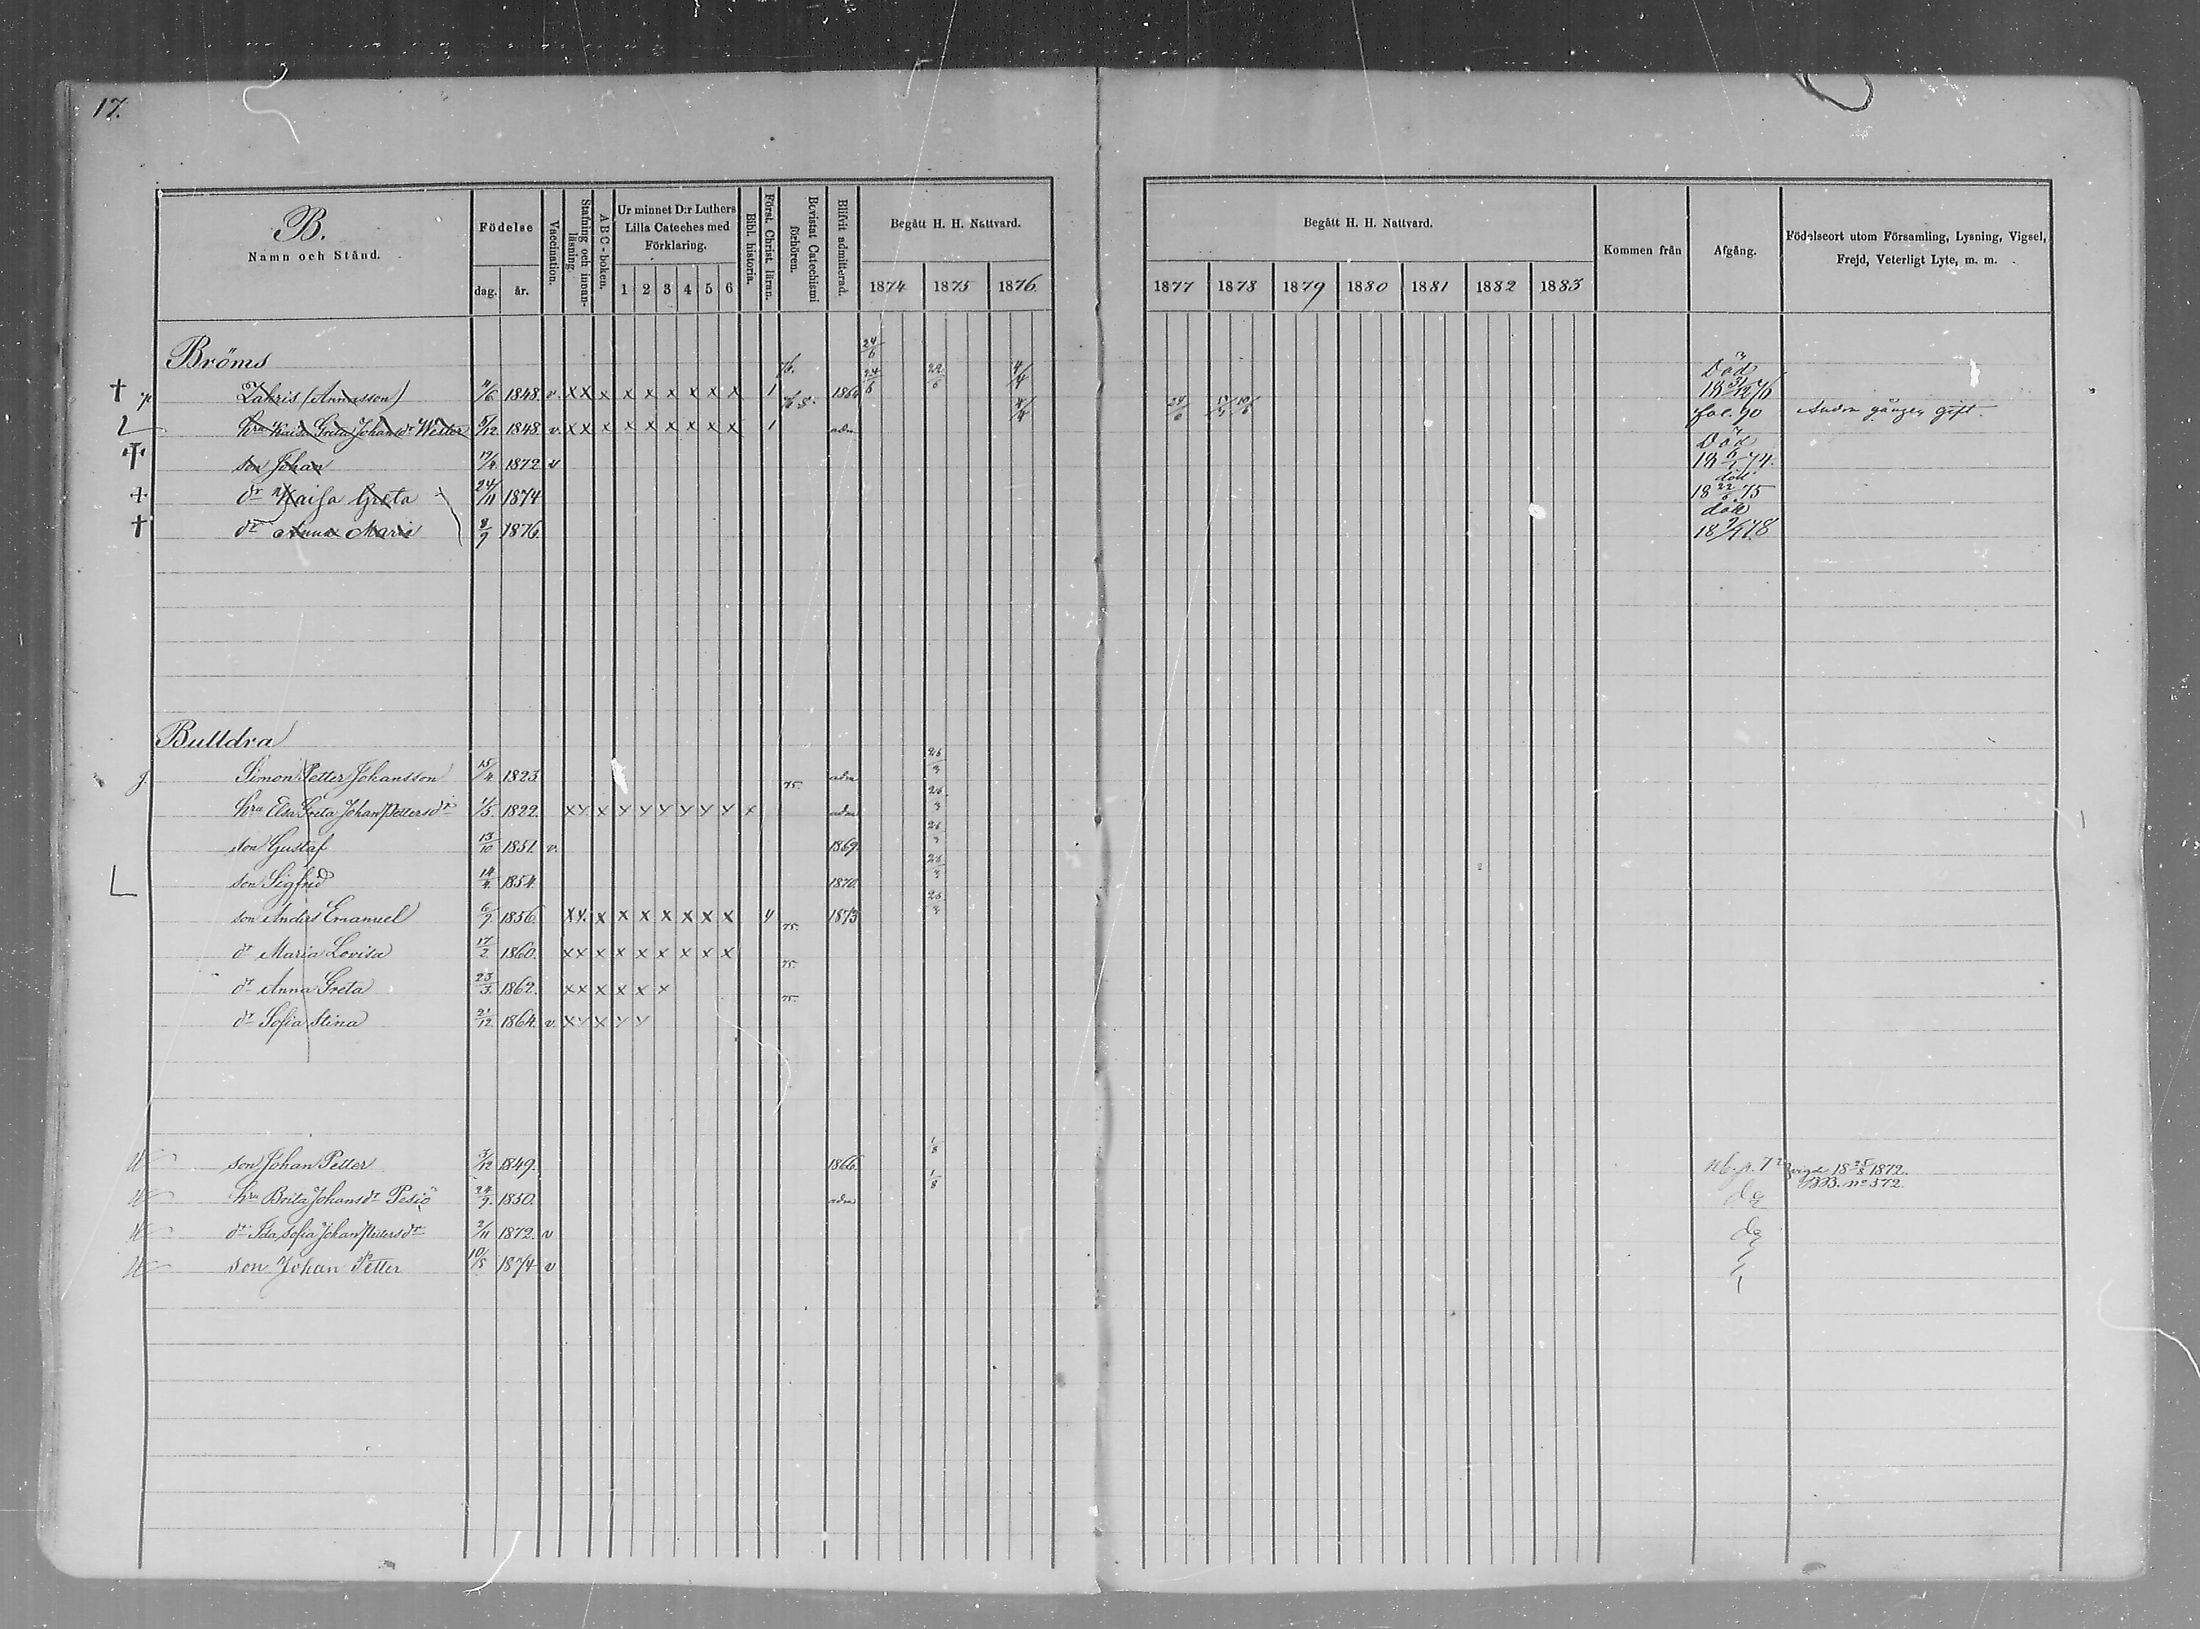 17.
B.
Namn och Stånd.
Födelse
dag. år.
Vaccination.
Stafning och innan-läsning.
ABC-boken.
Ur minnet D:r Luthers
Lilla Cateches med
Förklaring.
1 2 3 4 5 6
Bibl. historia.
Först. Christ. läran.
Bevistat Catechismi förhören.
Blifvit admitterad.
Begått H. H. Nattvard.
1874 1875 1876
Begått H. H. Nattvard.
1877 1878 1879 1880 1881 1882 1883
Kommen från
Afgång.
Födelseort utom Församling, Lysning, Vigsel,
Frejd, Veterligt Lyte, m. m.
Bröms
Zakris (Annasson) 11/6 1848 v. x x x x x x x x x 1 1864 24/6 22/6 4/4 Död 18 31/12 76
hru Kaisa Greta Johansdr Wester 5/12 1848 v. x x x x x x x x x 1 adm 4/4 24/6 fol. 90 Andra gången gift.
son Johan 19/4 1872 v Död 18 6/1 74.
dr Kaisa Greta 24/11 1874 död 18 22/6 75
dr Anna Maria 8/9 1876 död 18 9/4 78
Bulldra
Simon Petter Johansson 15/4 1823 75. adm 26/3
hru Elsa Greta Johan Pettersdr 1/5 1822. x x x x x x x x x x adm 26/3
son Gustaf 13/10 1851. v. 1869. 26/3
son Sigfrid 14/4 1854. 1870. 26/3
son Anders Emanuel 6/9 1856. x x. x x x x x x x 4 75. 1873 26/3
dr Maria Lovisa 17/2 1860. x x x x x x x x x 75.
dr Anna Greta 23/3 1862. x x x x x x 75.
dr Sofia Stina 21/12 1864. v. x x x x x
son Johan Petter 3/12 1849. 1866. 1/8 vigd 18 25/8 1872.
hru Brita Johansdr Pesiö 24/9 1850. adm 1/8 do BB. no 572.
dr Ida Sofia Johan Petersdr 2/11 1872. v do
son Johan Petter 10/5 1874 v